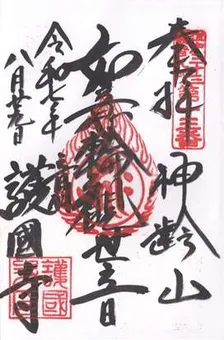 奉拝
神齢山
如意輪観世音
令和七年
八月廿九日
護國寺
護國寺